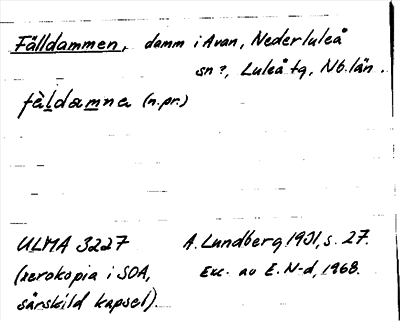 Fälldammen, damm i Avan, Nederluleå
sn?, Luleå tg, Nb. län.
fèldamna (n.pr.)
ULMA 3227 A. Lundberg 1901, s. 27.
(xerokopia i SOA, Exc. av E. N-d, 1968.
särskild kapsel).